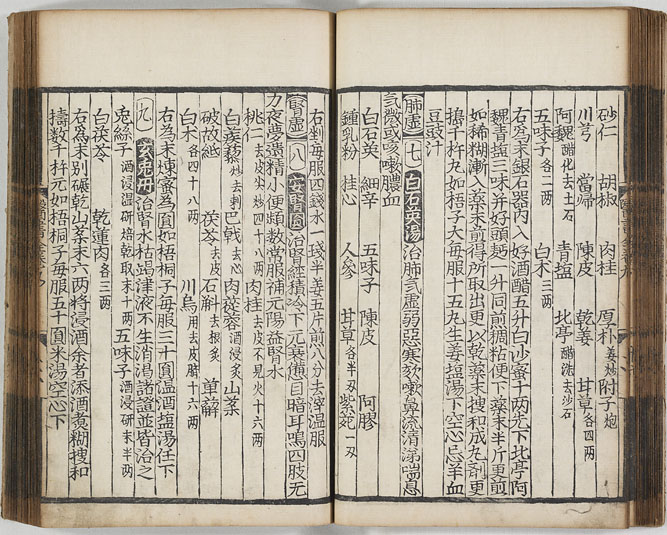 砂仁 胡椒 肉桂 厚朴姜炒 附子炮
川芎 當歸 陳皮 乾姜 甘草各四兩
阿魏醋化去土石 青塩 北亭醋淋去沙石
五味子各二兩 白朮三兩
右為末銀石器內入好酒醋五升白沙蜜十兩先下北亭阿
魏青塩三味并好頭麫一升同煎稠粘便下藥末半斤更煎
如稀糊漸入藥末煎得所取出更以乾藥末搜和成丸剤更
搗千杵丸如梧子大每服十五丸生姜塩湯下空心忌羊血
豆豉汁
肺虛 七 白石英湯 治肺氣虛弱惡寒欬嗽鼻流清涕喘息
氣微或咳嗽膿血
白石英 細辛 五味子 陳皮 阿膠
鍾乳粉 桂心 人參 甘草各半刄 紫菀一刄
右剉每服四錢水一琖半姜五片煎八分去滓温服
腎虛 八 安腎圓 治腎經積冷下元衰憊目暗耳鳴四肢无
力夜夢遺精小便頻數常服補元陽益腎水
桃仁去皮尖炒四十八兩 肉桂去皮不見火十六兩
白蒺藜炒去刺 巴戟去心 肉蓯蓉酒浸炙 山茱
破故紙 茯苓去皮 石斛去根炙 萆薢
白朮各四十八兩 川烏用去皮臍十六兩
右為末煉蜜為圓如梧桐子每服三十圓温酒塩湯任下
九 玄兎丹 治腎水枯竭津液不生消渴諸證並皆治之
兔絲子酒浸温研焙乾取末十兩 五味子酒浸研末半兩
白茯苓 乾蓮肉各三兩
右為末別碾乾山茱末六兩將浸酒余者添酒煮糊搜和
擣數千杵元如梧桐子每服五十圓米湯空心下